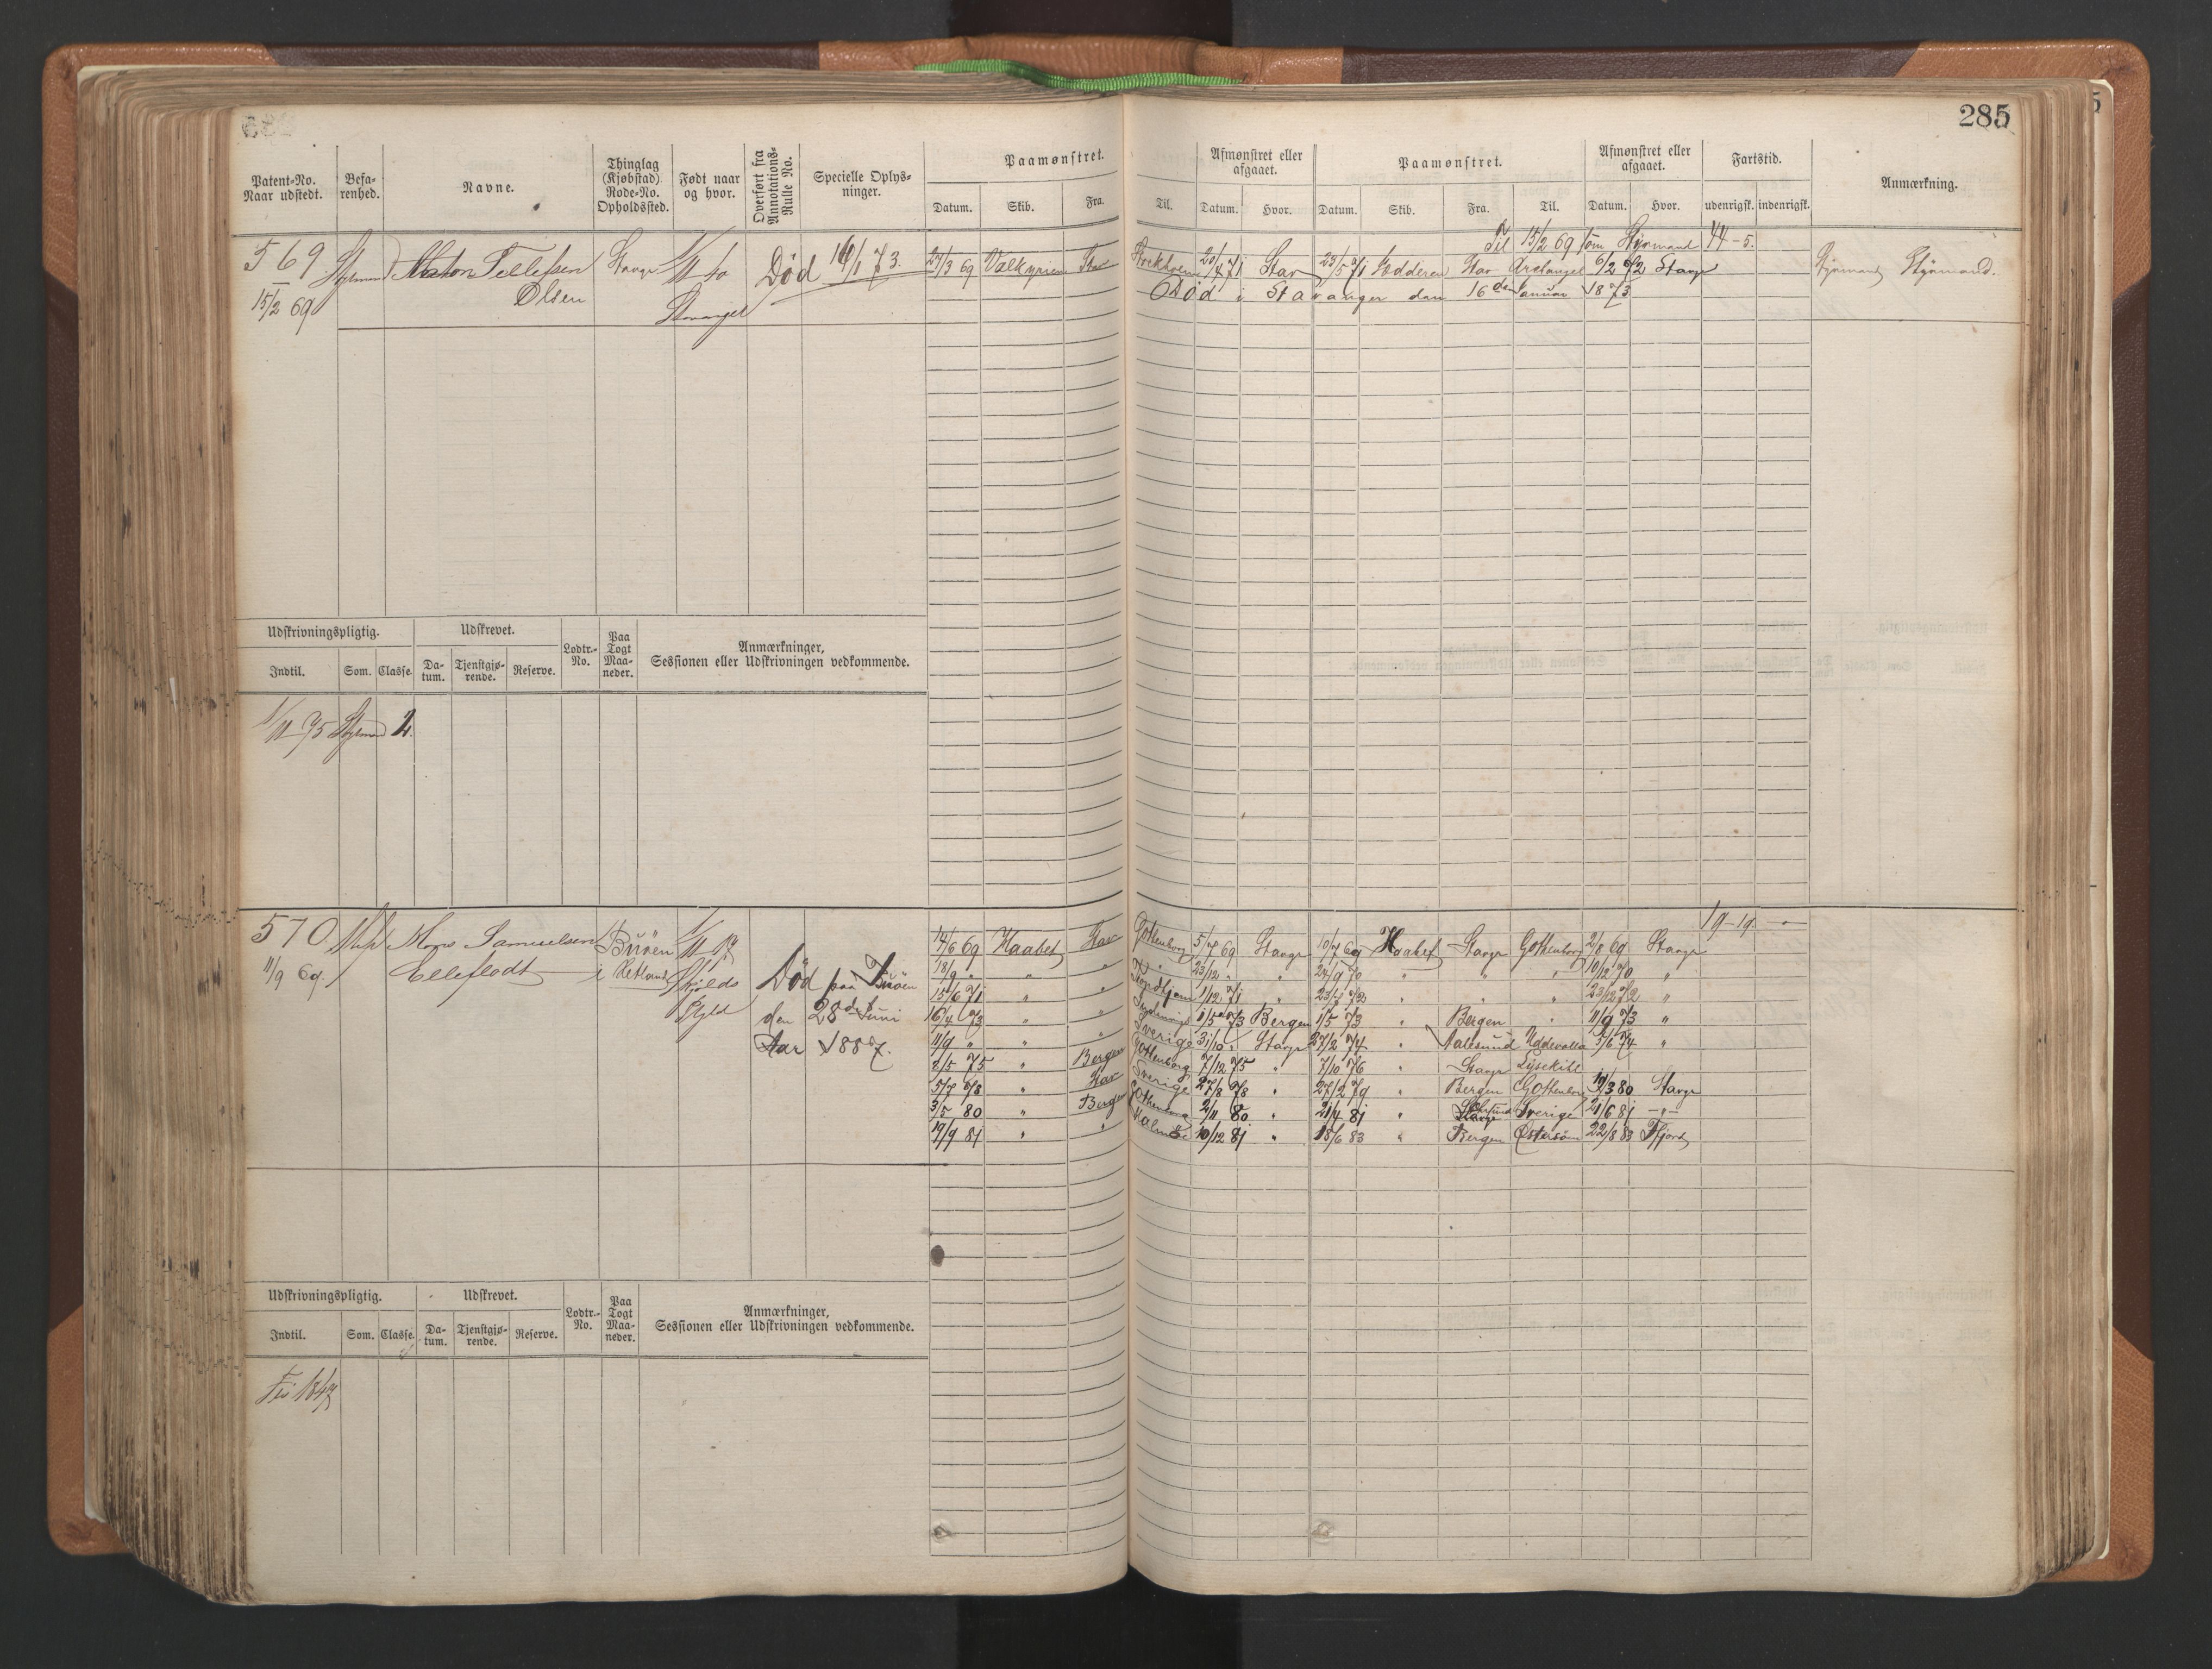 285
Patent-No. Naar udstedt.
Befarenhed.
Navne.
Thinglag (Kjøbstad) Rode-No. Opholdssted.
Født naar og hvor.
Overført fra Annotations-Rulle No.
Specielle Oplysninger.
Paamønstret.
Datum. Skib. Fra. Til.
Afmønstret eller afgaaet.
Datum. Hvor.
Paamønstret.
Datum. Skib. Fra. Til.
Afmønstret eller afgaaet.
Datum. Hvor.
Fartstid.
udenrigsk. indenrigsk.
Anmærkning.
Til 15/2 69 som Styrmand 44-5.
569 Tellefsen Stavgr 1/11 40 Død 16/1 73. 27/3 69 Valkyrien Stav Stockholm 20/4 71 Stav 23/5 71 Stav Archangel 6/2 72 Stavgr Styrmand Styrmand.
15/2 69 Olsen Stavanger
Død i Stavanger den 16de Januar 1873
Udskrivningspligtig. Udskrevet. Lodtr.-No. Paa Togt Maaneder. Anmærkninger, Sessionen eller Udskrivningen vedkommende.
Indtil. Som. Classe. Datum. Tjenstgjørende. Reserve.
1/11 75 2.
19-19 -"-
570 Mons Samuelsen Buøen 14/6 69 Haabet Stav Gothenborg 5/7 69 Stavgr 10/7 69 Haabet Stavgr Gothenborg 2/8 69 Stavgr
11/9 69. Elleflodt i Hetland Skjold Død paa Buöen 18/9 " " " " 23/12 " " 24/9 70 " " " 10/12 70 "
15/6 71 " " Trondhjem 1/12 71 " " " " 23/12 72 "
den 28de Juni 16/4 73 " " 1/5 73 Bergen 1/5 73 " Bergen " 11/9 73 "
Aar 1887. 11/9 " " " Sverige 31/10 " Stavgr 27/2 74 " Aalesund Uddevalla 5/6 74 "
2/5 75 " Bergen Gothenborg 7/12 75 " 7/10 76 " Stavgr Lysekihl
5/7 78 " Stav Sverige 27/8 78 " 27/2 79 " Bergen Gothenborg /3 80 Stavgr
3/5 80 " Bergen Gothenborg 2/11 80 " 21/4 81 " Sverige 21/6 81 -"-
19/9 81 " " Malmöe 10/12 81 " 15/6 83 " Bergen Østersöen 22/8 83
Udskrivningspligtig. Udskrevet. Lodtr.-No. Paa Togt Maaneder. Anmærkninger, Sessionen eller Udskrivningen vedkommende.
Indtil. Som. Classe. Datum. Tjenstgjørende. Reserve.